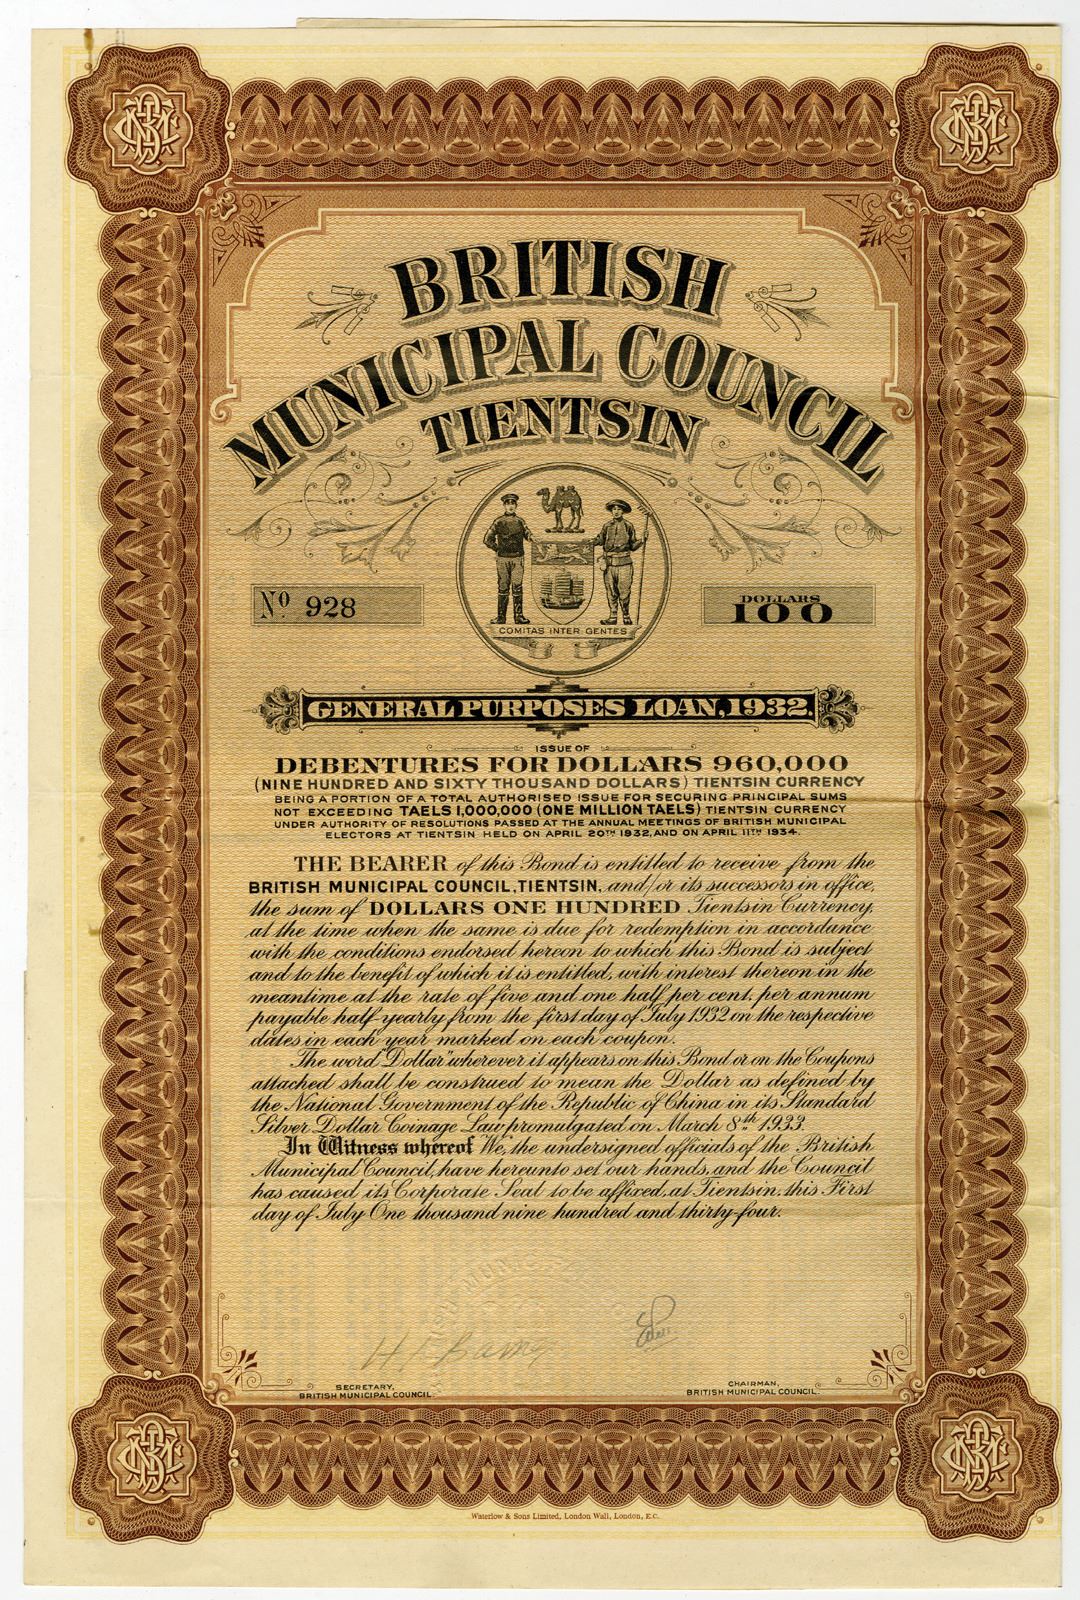 BRITISH
MUNICIPAL COUNCIL
TIENTSIN
No 928
DOLLARS
100
COMITAS INTER GENTES
GENERAL PURPOSES LOAN, 1932.
ISSUE OF
DEBENTURES FOR DOLLARS 960,000
(NINE HUNDRED AND SIXTY THOUSAND DOLLARS) TIENTSIN CURRENCY
BEING A PORTION OF A TOTAL AUTHORISED ISSUE FOR SECURING PRINCIPAL SUMS
NOT EXCEEDING TAELS 1,000,000 (ONE MILLION TAELS) TIENTSIN CURRENCY
UNDER AUTHORITY OF RESOLUTIONS PASSED AT THE ANNUAL MEETINGS OF BRITISH MUNICIPAL
ELECTORS AT TIENTSIN HELD ON APRIL 20TH 1932, AND ON APRIL 11TH 1934.
THE BEARER of this Bond is entitled to receive from the
BRITISH MUNICIPAL COUNCIL, TIENTSIN, and/or its successors in office,
the sum of DOLLARS ONE HUNDRED Tientsin Currency,
at the time when the same is due for redemption in accordance
with the conditions endorsed hereon to which this Bond is subject
and to the benefit of which it is entitled, with interest thereon in the
meantime at the rate of five and one half per cent. per annum
payable half-yearly from the first day of July 1932 on the respective
dates in each year marked on each coupon.
The word "Dollar" wherever it appears on this Bond or on the Coupons
attached shall be construed to mean the Dollar as defined by
the National Government of the Republic of China in its Standard
Silver Dollar Coinage Law promulgated on March 8th 1933.
In Witness whereof We, the undersigned officials of the British
Municipal Council, have hereunto set our hands, and the Council
has caused its Corporate Seal to be affixed, at Tientsin, this First
day of July One thousand nine hundred and thirty-four.
SECRETARY,
BRITISH MUNICIPAL COUNCIL.
CHAIRMAN,
BRITISH MUNICIPAL COUNCIL.
Waterlow & Sons Limited, London Wall, London, E.C.